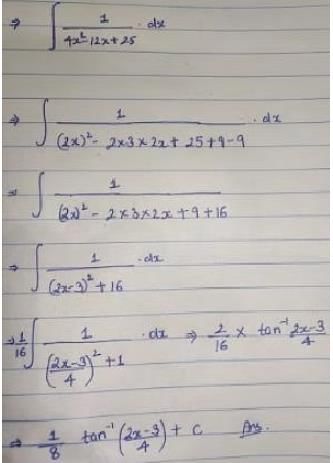 ⇒ ∫ 1/(4x²-12x+25) · dx
⇒ ∫ 1/((2x)² - 2×3×2x + 25+9-9) · dx
⇒ ∫ 1/((2x)² - 2×3×2x + 9+16)
⇒ ∫ 1/((2x-3)² + 16) · dx
⇒ 1/16 ∫ 1/(((2x-3)/4)² + 1) · dx ⇒ 2/16 × tan⁻¹ (2x-3)/4
⇒ 1/8 tan⁻¹ ((2x-3)/4) + c Ans.